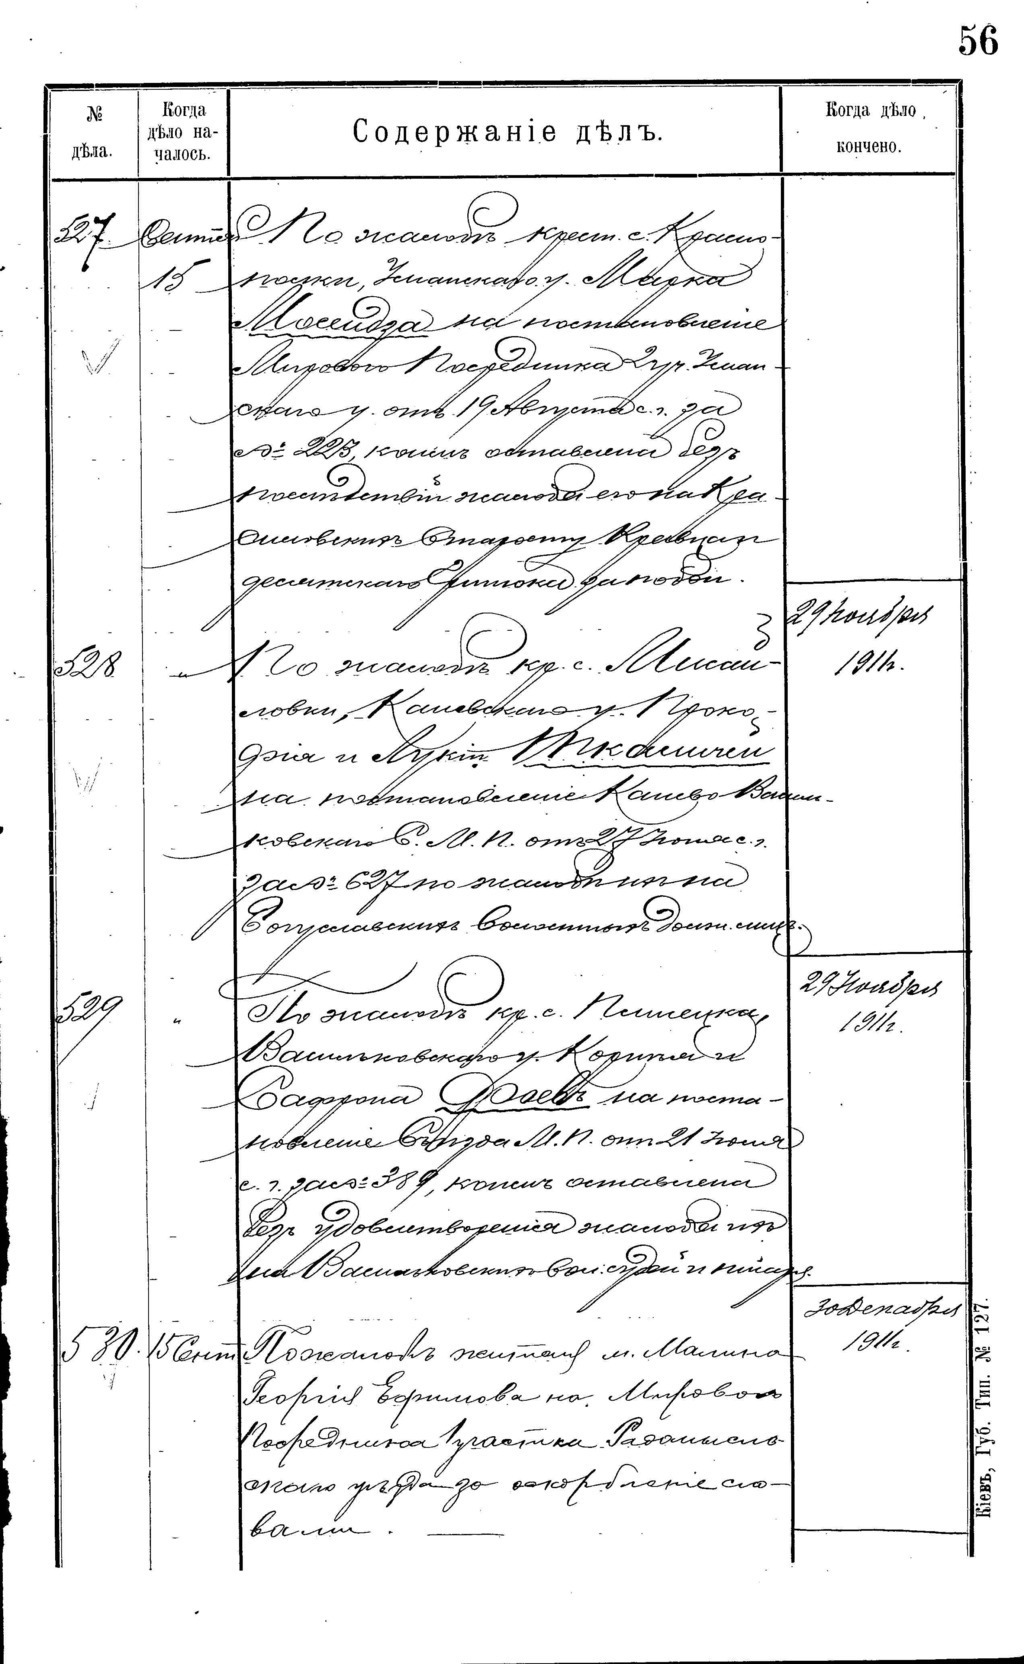 56
№ дѣла.
Когда дѣло началось.
Содержаніе дѣлъ.
Когда дѣло кончено.
527. Сентяб По жалобѣ крест. с. Красно-
15 полки, Уманскаго у. Марка
на постановленіе
Мирового Посредника 2 уч. Уман-
скаго у. отъ 19 Августа с. г. за
№ 225, коимъ оставлена безъ
послѣдствій жалоба его на Кра
Старосту
десятскаго за побои.
29 Ноября
1911г.
528 " По жалобѣ кр. с. Мисай-
ловки, Каневскаго у. Проко-
фія и Лукіи Ткаличей
на постановленіе Канево Василь-
ковскаго С. М. П. отъ 27 Іюня с. г.
за № 627 по жалобѣ ихъ на
Богуславскихъ Волостныхъ Должн. лицъ.
29 Ноября
1911г.
529 " По жалобѣ кр. с.
Васильковскаго у. и
Сафрона на поста-
новленіе Съѣзда М. П. отъ 21 Іюня
с. г. за № 389, коимъ оставлена
безъ удовлетворенія жалоба ихъ
на Васильковскихъ Вол. судей и писаря.
30 Декабря
1911г.
530. 15 Сент По жалобѣ жителя м. Малина
Георгія Ефимова на Мирового
Посредника 1 участка Радомысль-
скаго уѣзда за оскорбленіе сло-
вами.
Кіевъ, Губ. Тип. № 127.